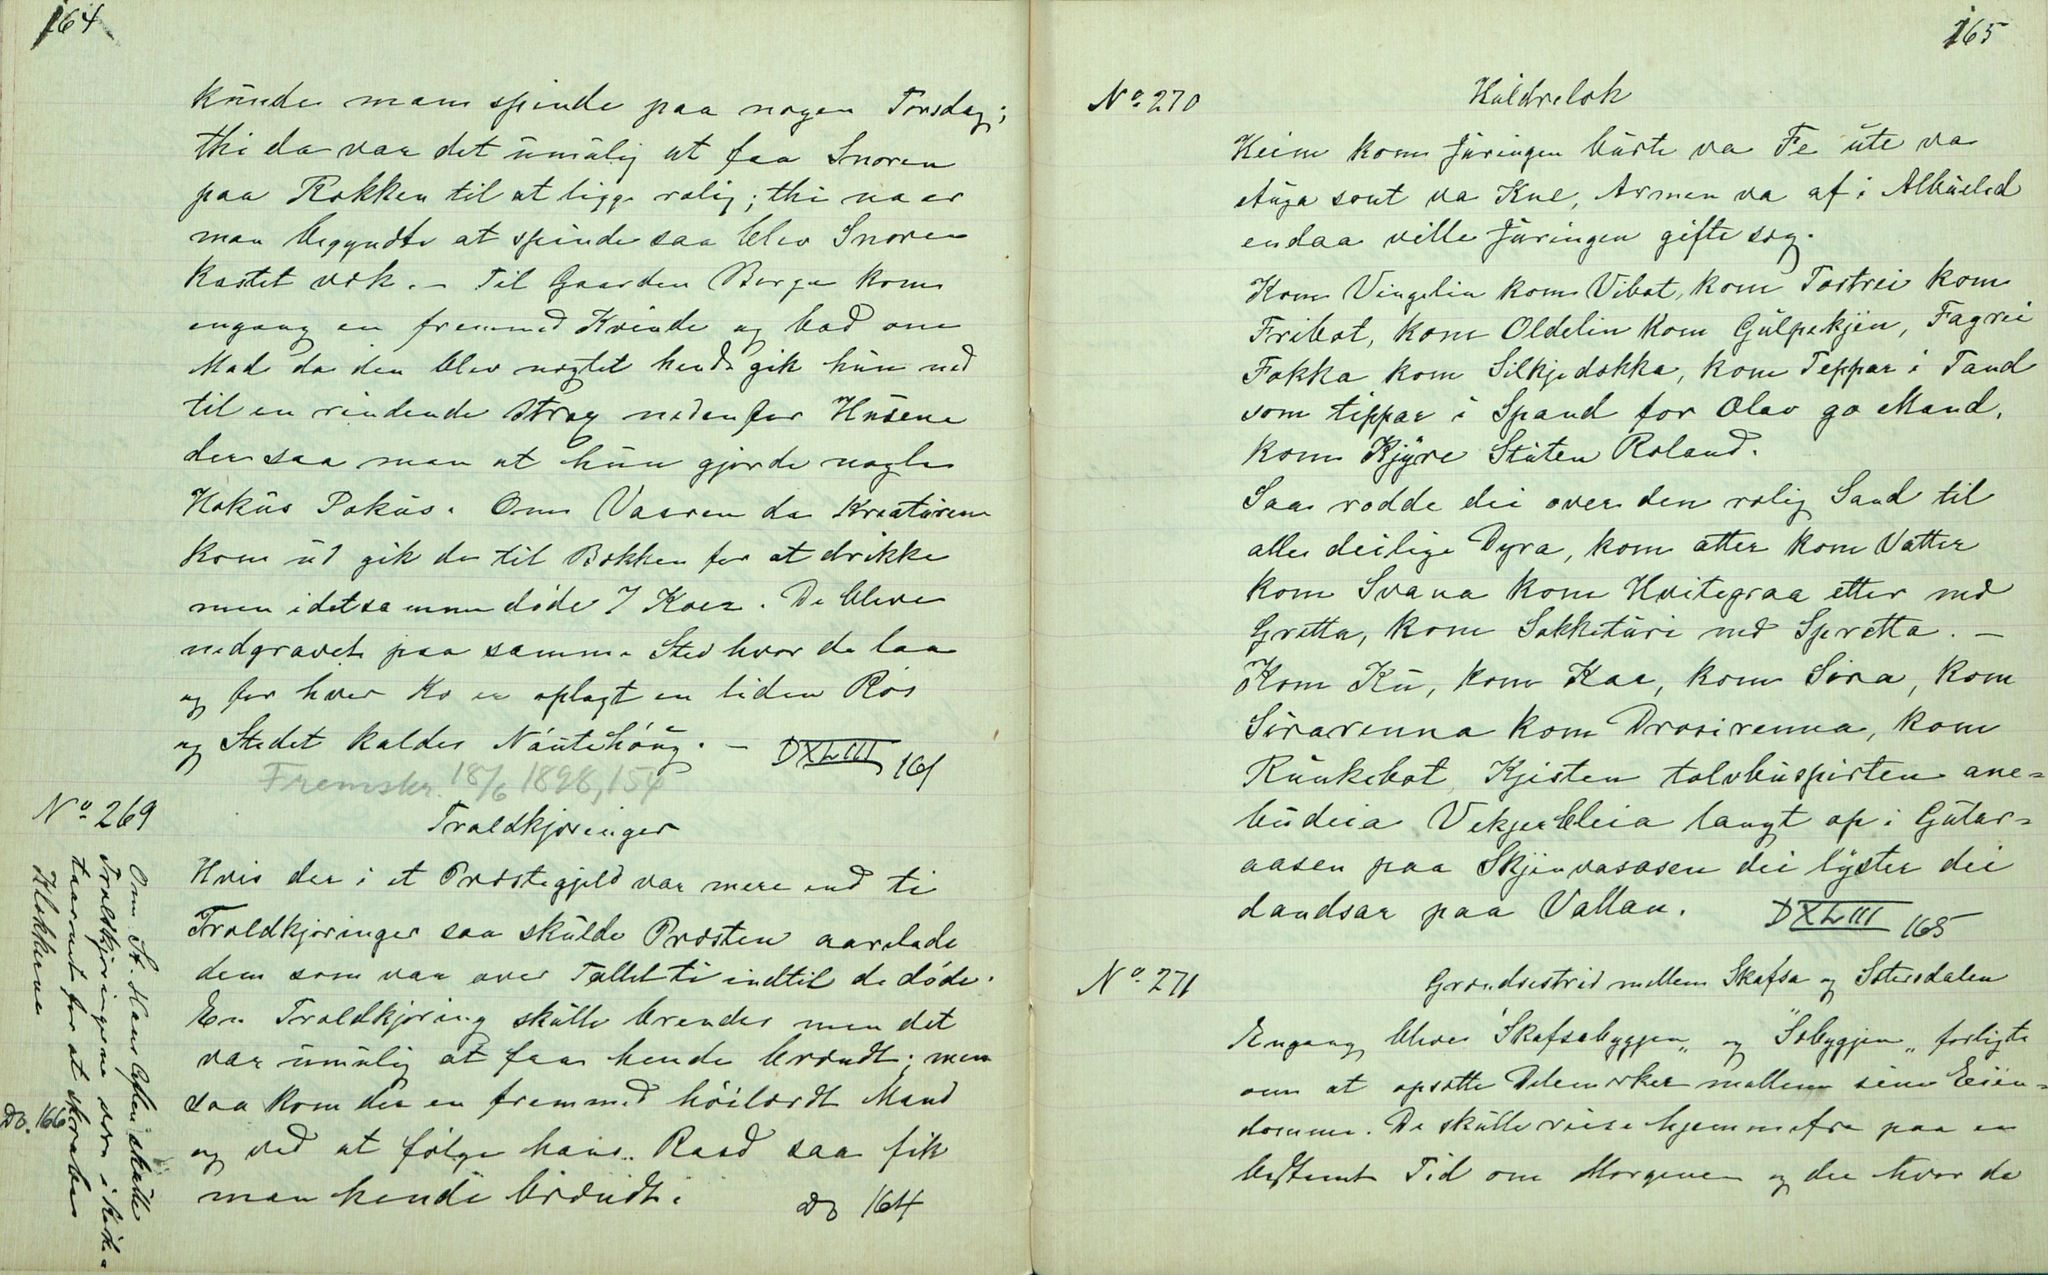 164
kunde man spinde paa nogen Torsdag;
thi da var det umulig at faa Snoren
paa Rokken til at ligge rolig; thi naar
man begyndte at spinde saa blev Snoren
kastet væk. – Til Gaarden Berge kom
engang en fremmed Kvinde og bad om
Mad da den blev nægtet hende gik hun ned
til en rindende Strøg nedenfor Husene
der saa man at hun gjorde nogle
Hokus Pokus. Om Vaaren da Kreaturene
kom ud gik de til Bækken for at drikke
men i det samme døde 7 Koer. De bleve
nedgravet paa samme Sted hvor de laa
og for hver Ko er oplagt en liden Røs
og Stedet kaldes Nautehoug. –
DXLIII 161
Fremskr. 18/6 1898, 154
No 269
Troldkjøringer
Hvis der i et Præstegjeld var mere end ti
Troldkjøringer saa skulde Præsten aarelade
dem som var over Tallet ti indtil de døde.
En Troldkjøring skulle brendes men det
var umulig at faa hende brændt; men
saa kom der en fremmed höilærdt Mand
og ved at følge hans Raad saa fik
man hende brændt.
Do 164
Om St. Hans Aften skulle
Troldkjøringerne være i Kirke=
taarnet for at skrabe
Klokkerne
Do. 166
165
No 270
Huldrelok
Heim kom Juringen burte va Fe ute va
Auga sout va Kne, Armen va af i Albueled
endaa ville Juringen gifte seg.
Kom Vingelin kom Vibot, kom Tostrei kom
Fribot, kom Oldelin kom Gulpekjen, Fagrei
Fokka kom Silkjedokka, kom Teppar i Tand
som tippar i Spand for Olav go Mand,
kom Kjyre Stuten Roland.
Saa rodde dei over den rolig Sand til
alle deilige Dyra, kom atter kom Vatter
kom Svana kom Hvitegraa etter med
Gretta, kom Sokketuri med Spretta. –
Kom Ku, kom Kaa, kom Sira, kom
Sirarenna kom Drosirenna, kom
Runkebot Kjisten tolvbuspisten ane=
budeia Vekjer bleia langt op i Gutar=
aasen paa Skjinvasaasen dei lyster dei
dandsar paa Vallan.
DXLIII 165
No 271
Grændsestrid mellem Skafsa og Sætersdalen
Engang bleve "Skafsabyggjen" og "Sæbyggjen" forligte
om at opsætte Delemærker mellem sine Eien=
domme. De skulle reise hjemmefra paa en
bestemt Tid om Morgenen og der hvor de